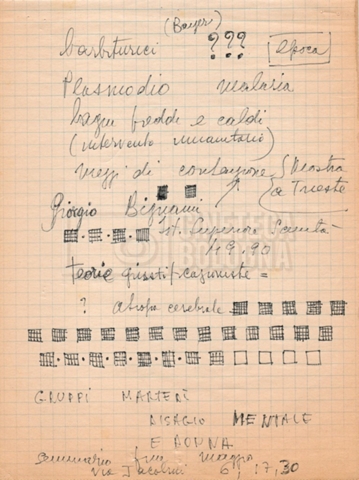 (Bayer)
barbiturici ??? epoca
Plasmodio malaria
bagni freddi e caldi
(intervento umanitario)
mezzi di contenzione (Mostra
a Trieste
Giorgio Bignami
Ist. Superiore Sanità
49,90
Teorie giustificazioniste =
? atrofia cerebrale
GRUPPI MARTEDÌ
DISAGIO MENTALE
E DONNA
Seminario fine maggio
Via Jacobini 6, 17,30